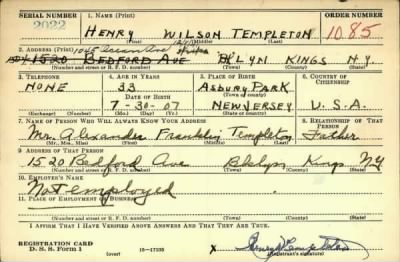 SERIAL NUMBER 1. NAME (Print) ORDER NUMBER
2022 HENRY WILSON TEMPLETON 1085
2. ADDRESS (Print) 1045 Ave
1520 BEDFORD AVE B'LYN KINGS N.Y.
(Number and street or R. F. D. number) (Town) (County) (State)
3. TELEPHONE 4. AGE IN YEARS 5. PLACE OF BIRTH 6. COUNTRY OF CITIZENSHIP
NONE 33 ASBURY PARK
DATE OF BIRTH (Town or county)
7-30-07 NEW JERSEY U.S.A.
(Mo.) (Day) (Yr.) (State or country)
7. NAME OF PERSON WHO WILL ALWAYS KNOW YOUR ADDRESS 8. RELATIONSHIP OF THAT PERSON
Mr. Alexander Franklin Templeton Father
(Mr., Mrs., Miss) (First) (Middle) (Last)
9. ADDRESS OF THAT PERSON
1520 Bedford Ave Bklyn Kings NY
(Number and street or R. F. D. number) (Town) (County) (State)
10. EMPLOYER'S NAME
Not employed
11. PLACE OF EMPLOYMENT OR BUSINESS
(Number and street or R. F. D. number) (Town) (County) (State)
I AFFIRM THAT I HAVE VERIFIED ABOVE ANSWERS AND THAT THEY ARE TRUE.
REGISTRATION CARD
D. S. S. Form 1 (over) 16-17105 X Henry W Templeton
(Registrant's signature)